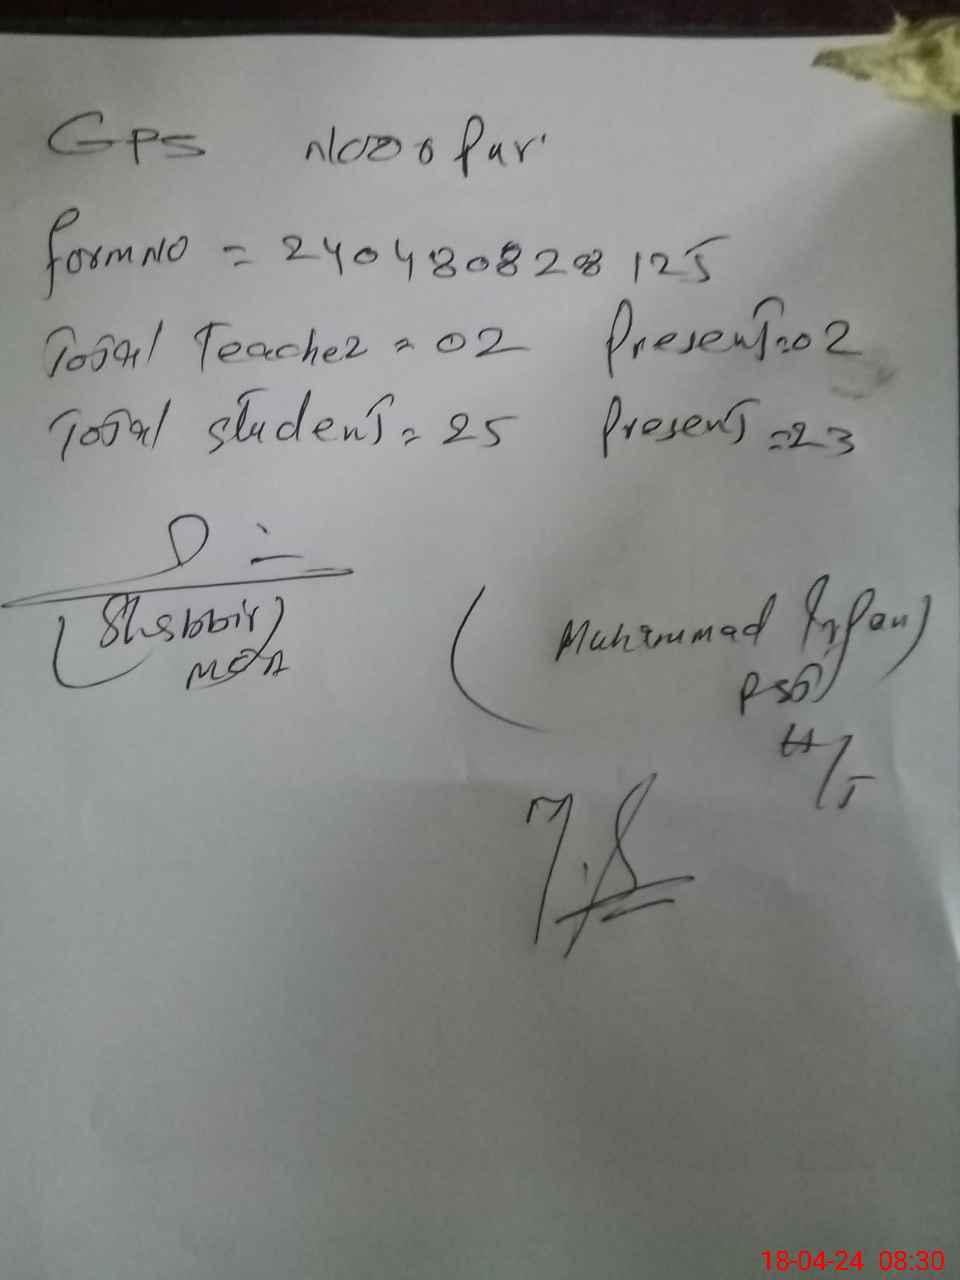 GPS Noor Pur
Form No = 240480828125
Total Teacher = 02 Present = 02
Total student = 25 Present = 23
(Shabbir)
MEA
(Muhammad Irfan)
PST
H/T
18-04-24 08:30